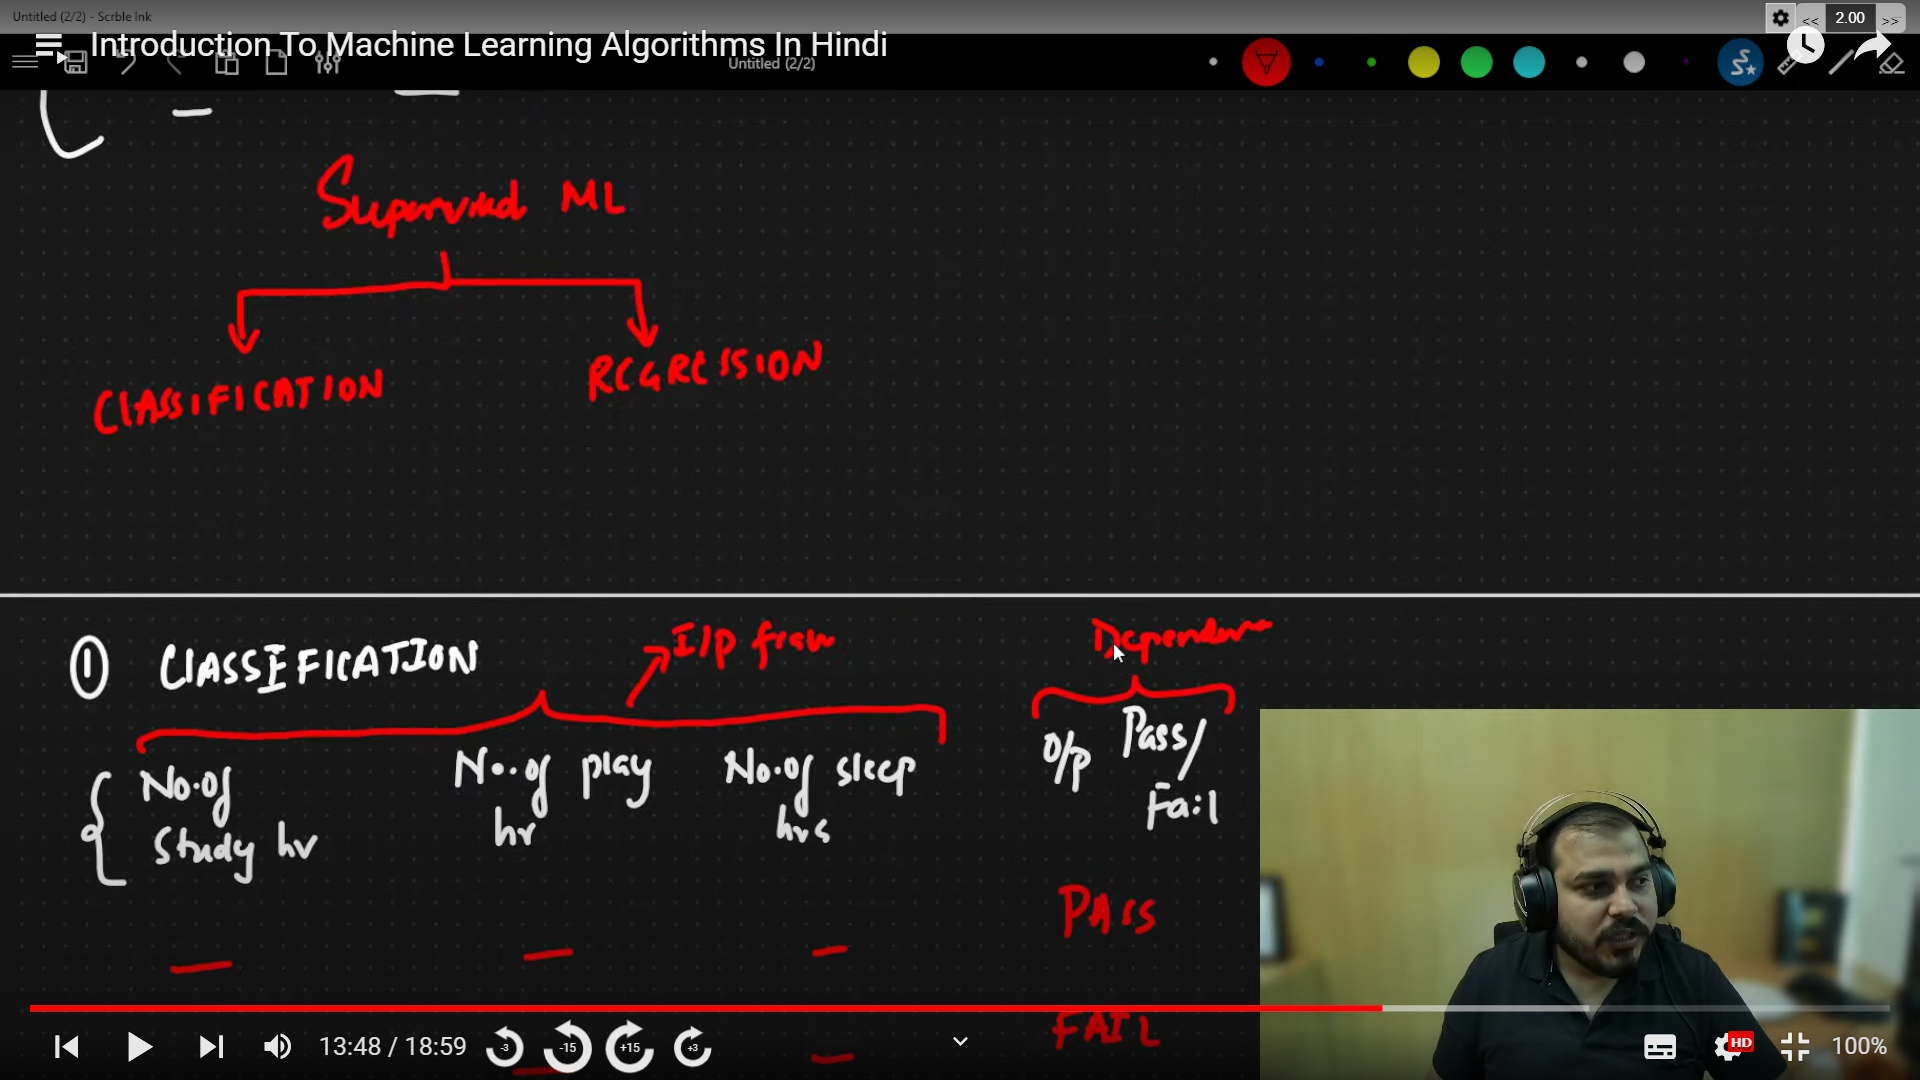 Untitled (2/2) - Scrble Ink
<< 2.00 >>
Introduction To Machine Learning Algorithms In Hindi
Untitled (2/2)
Supervised ML
CLASSIFICATION
REGRESSION
① CLASSIFICATION
I/p
No. of Study hr
No. of play hr
No. of sleep hrs
O/p Pass/ Fail
PASS
FAIL
13:48 / 18:59
-3
-15
+15
+3
HD
100%